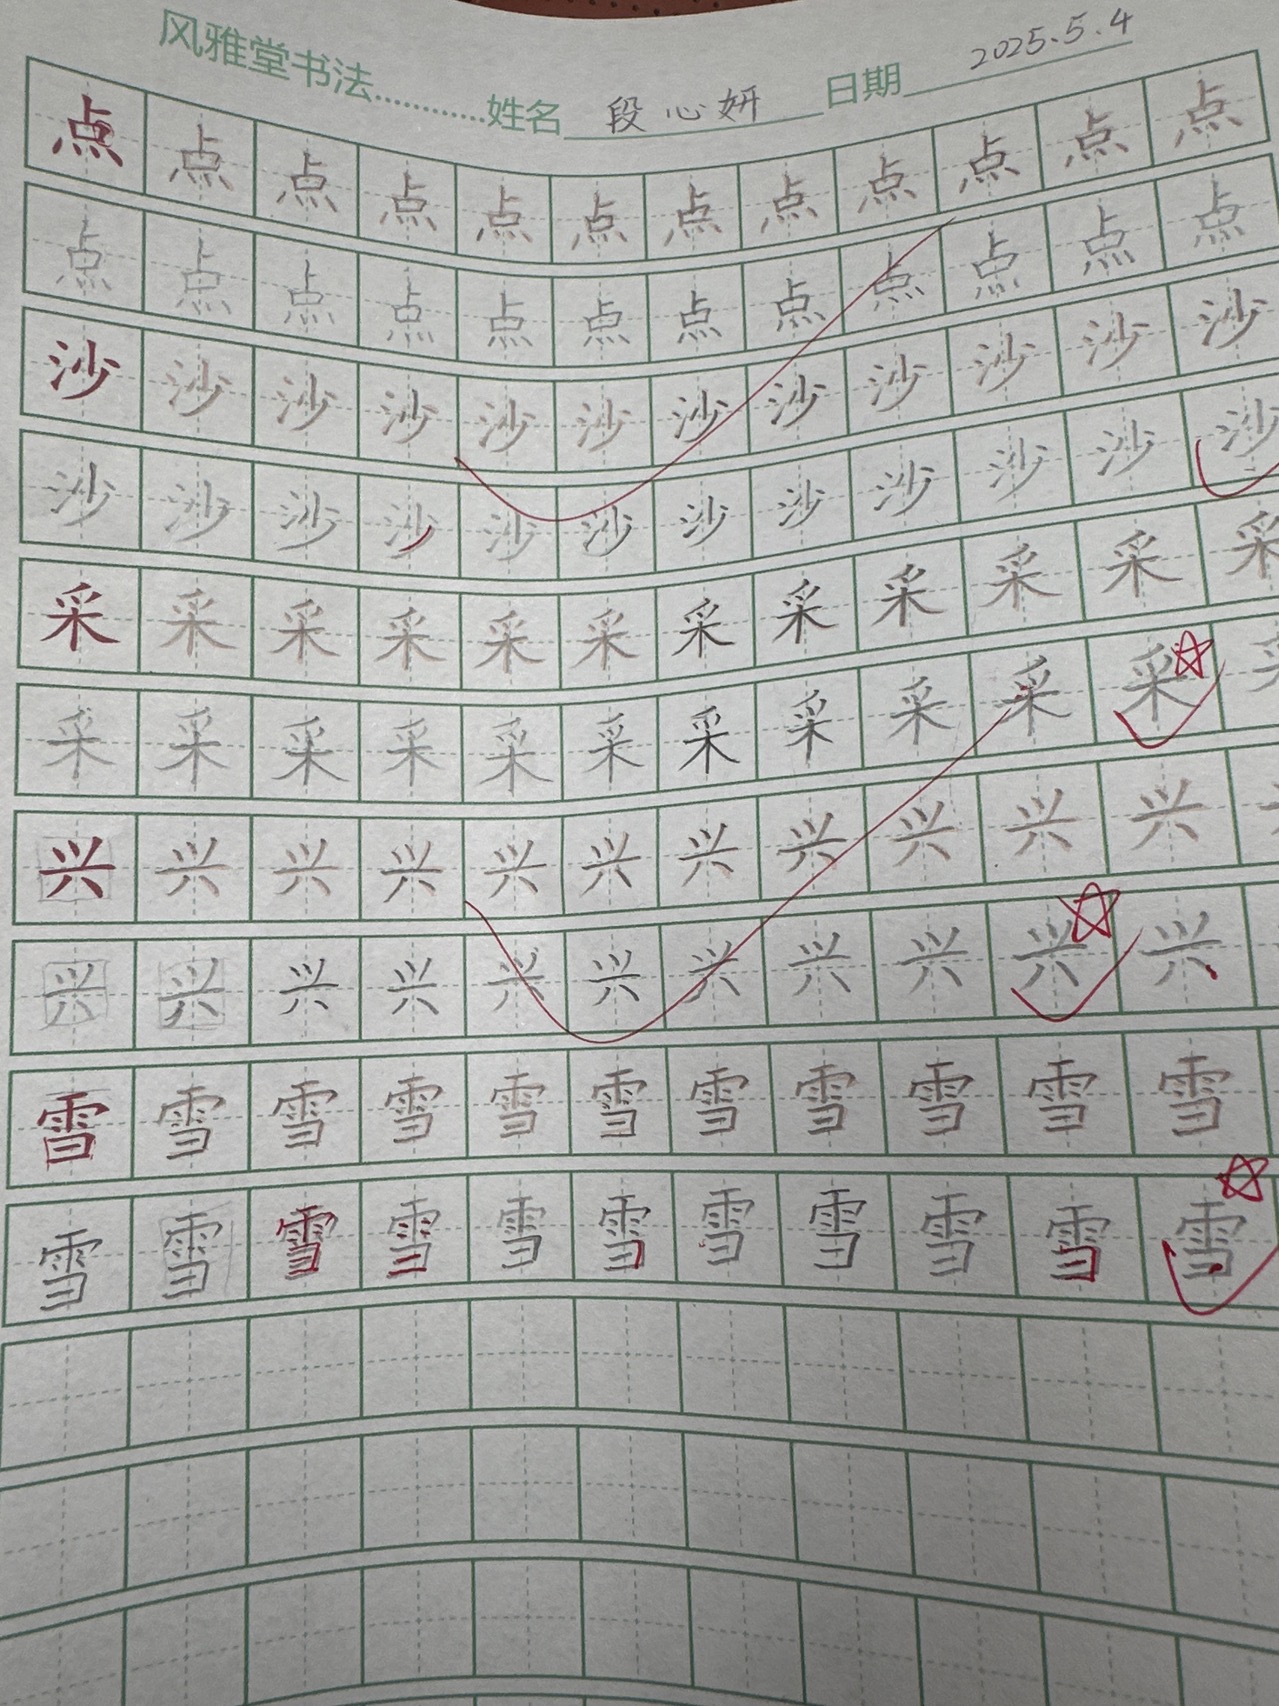 风雅堂书法............姓名 段心妍 日期 2025.5.4
点点点点点点点点点点点点
点点点点点点点点点点点点
沙沙沙沙沙沙沙沙沙沙沙沙
沙沙沙沙沙沙沙沙沙沙沙沙
采采采采采采采采采采采采
采采采采采采采采采采采采
兴兴兴兴兴兴兴兴兴兴兴
兴兴兴兴兴兴兴兴兴兴兴
雪雪雪雪雪雪雪雪雪雪雪
雪雪雪雪雪雪雪雪雪雪雪